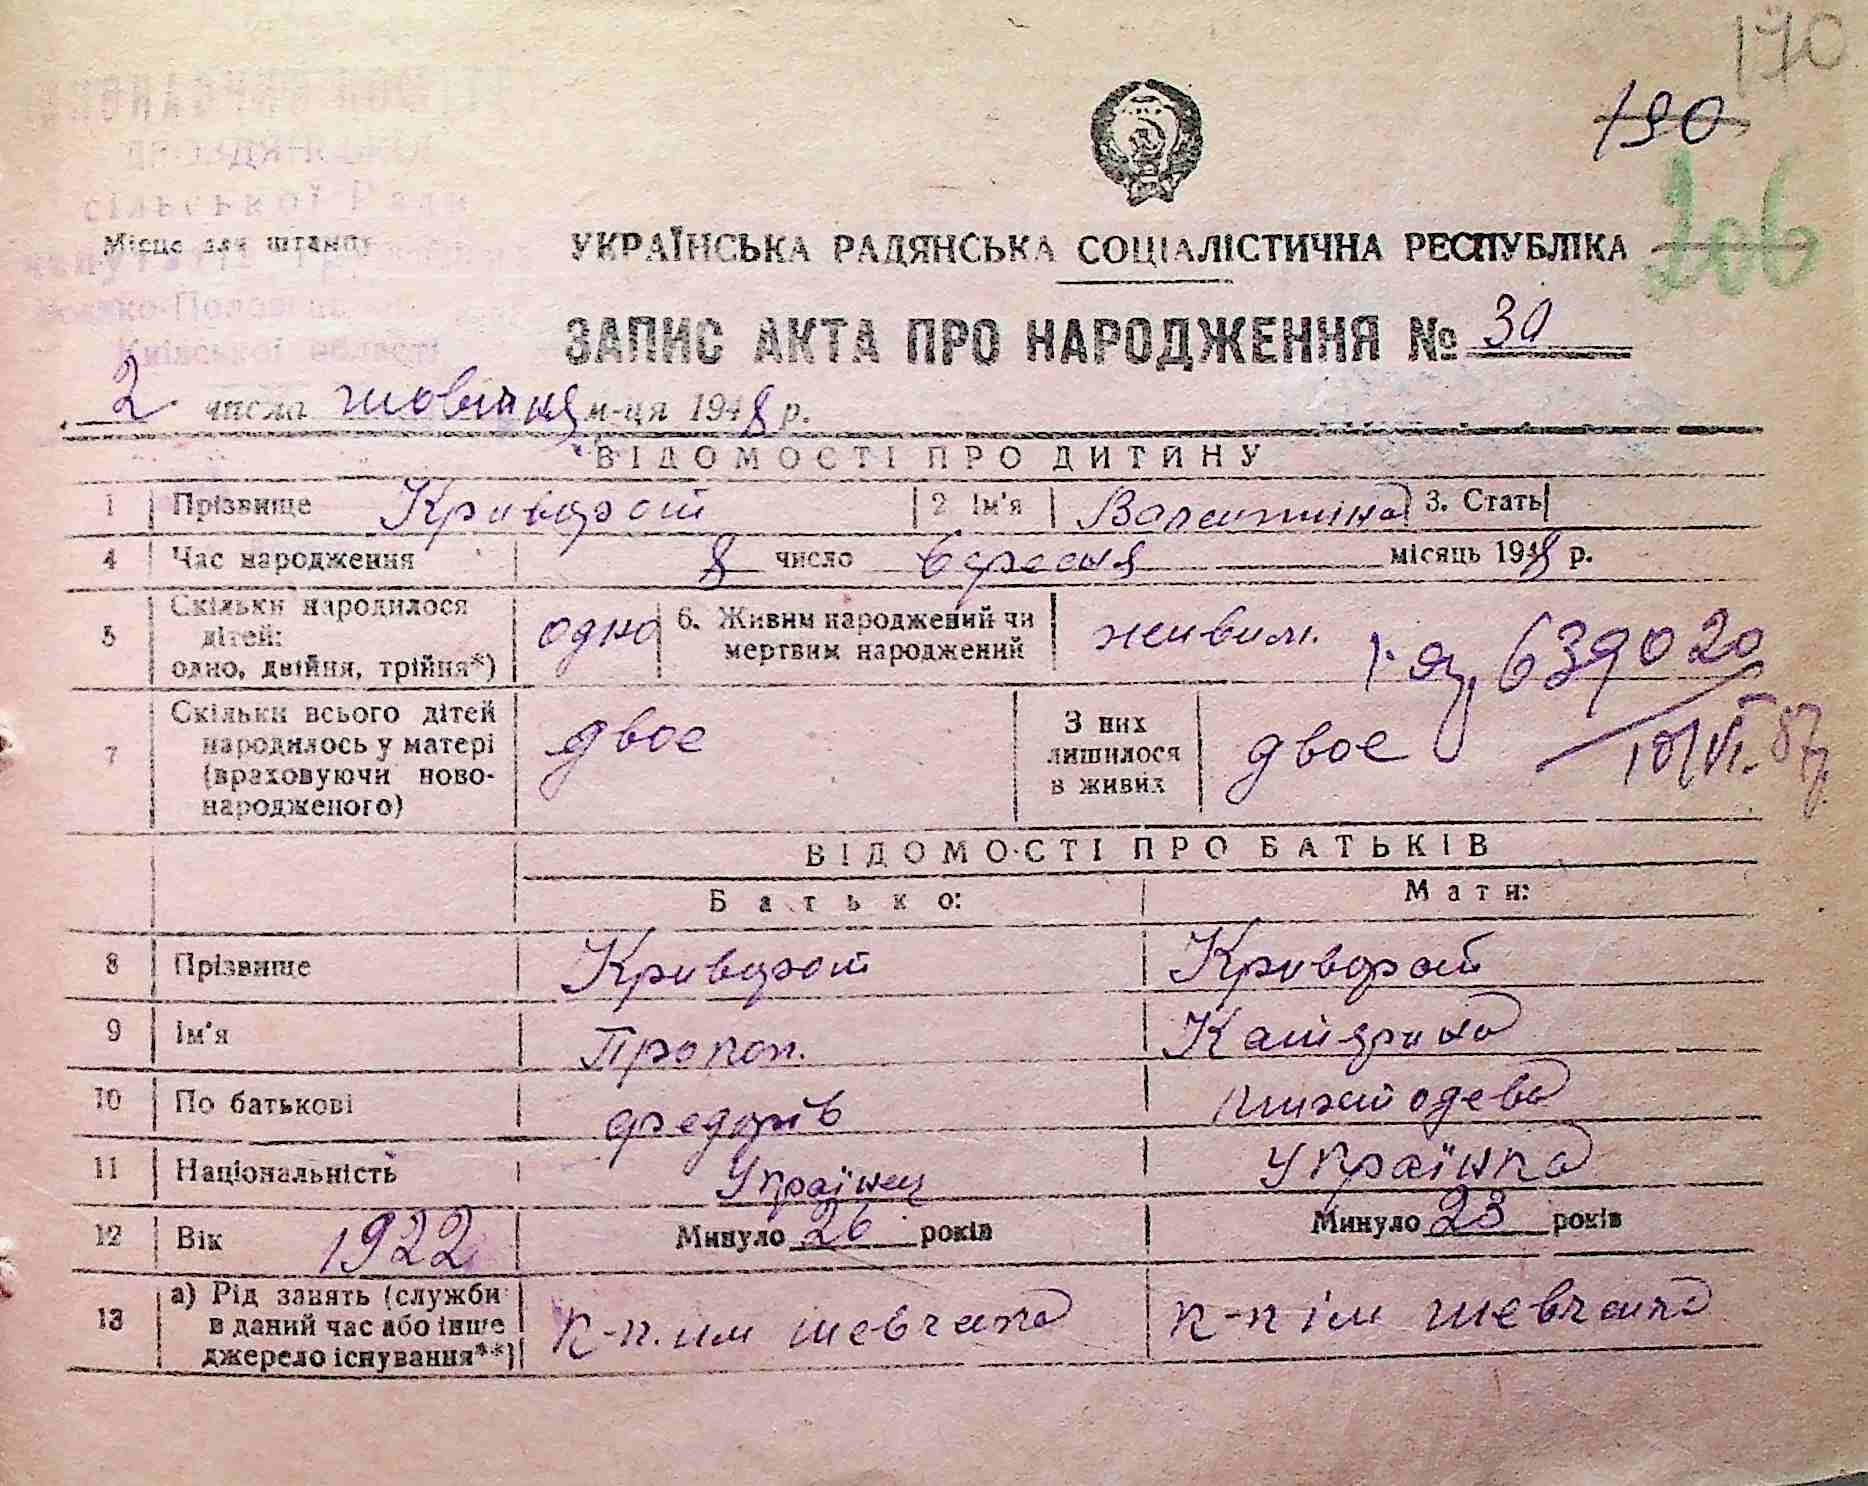 170
190
206
сільської Ради
Місце для штампу
УКРАЇНСЬКА РАДЯНСЬКА СОЦІАЛІСТИЧНА РЕСПУБЛІКА
Київської області
ЗАПИС АКТА ПРО НАРОДЖЕННЯ № 30
2 числа жовтня м-ця 1948 р.
ВІДОМОСТІ ПРО ДИТИНУ
1 Прізвище Криворот 2 Ім'я Валентина 3. Стать
4 Час народження 8 число вересня місяць 1948 р.
5 Скільки народилося дітей: одно, двійня, трійня*) одно 6. Живим народжений чи мертвим народжений живим
639020
10/VI-87р.
7 Скільки всього дітей народилось у матері (враховуючи ново-народженого) двое З них лишилося в живих двое
ВІДОМОСТІ ПРО БАТЬКІВ
Батько: Мати:
8 Прізвище Криворот Криворот
9 Ім'я Прокоп. Катерина
10 По батькові Федорів
11 Національність Українец Українка
12 Вік 1922 Минуло 26 років Минуло 23 років
13 а) Рід занять (служби в даний час або інше джерело існування**) к-п. им шевченка к-п ім шевченка